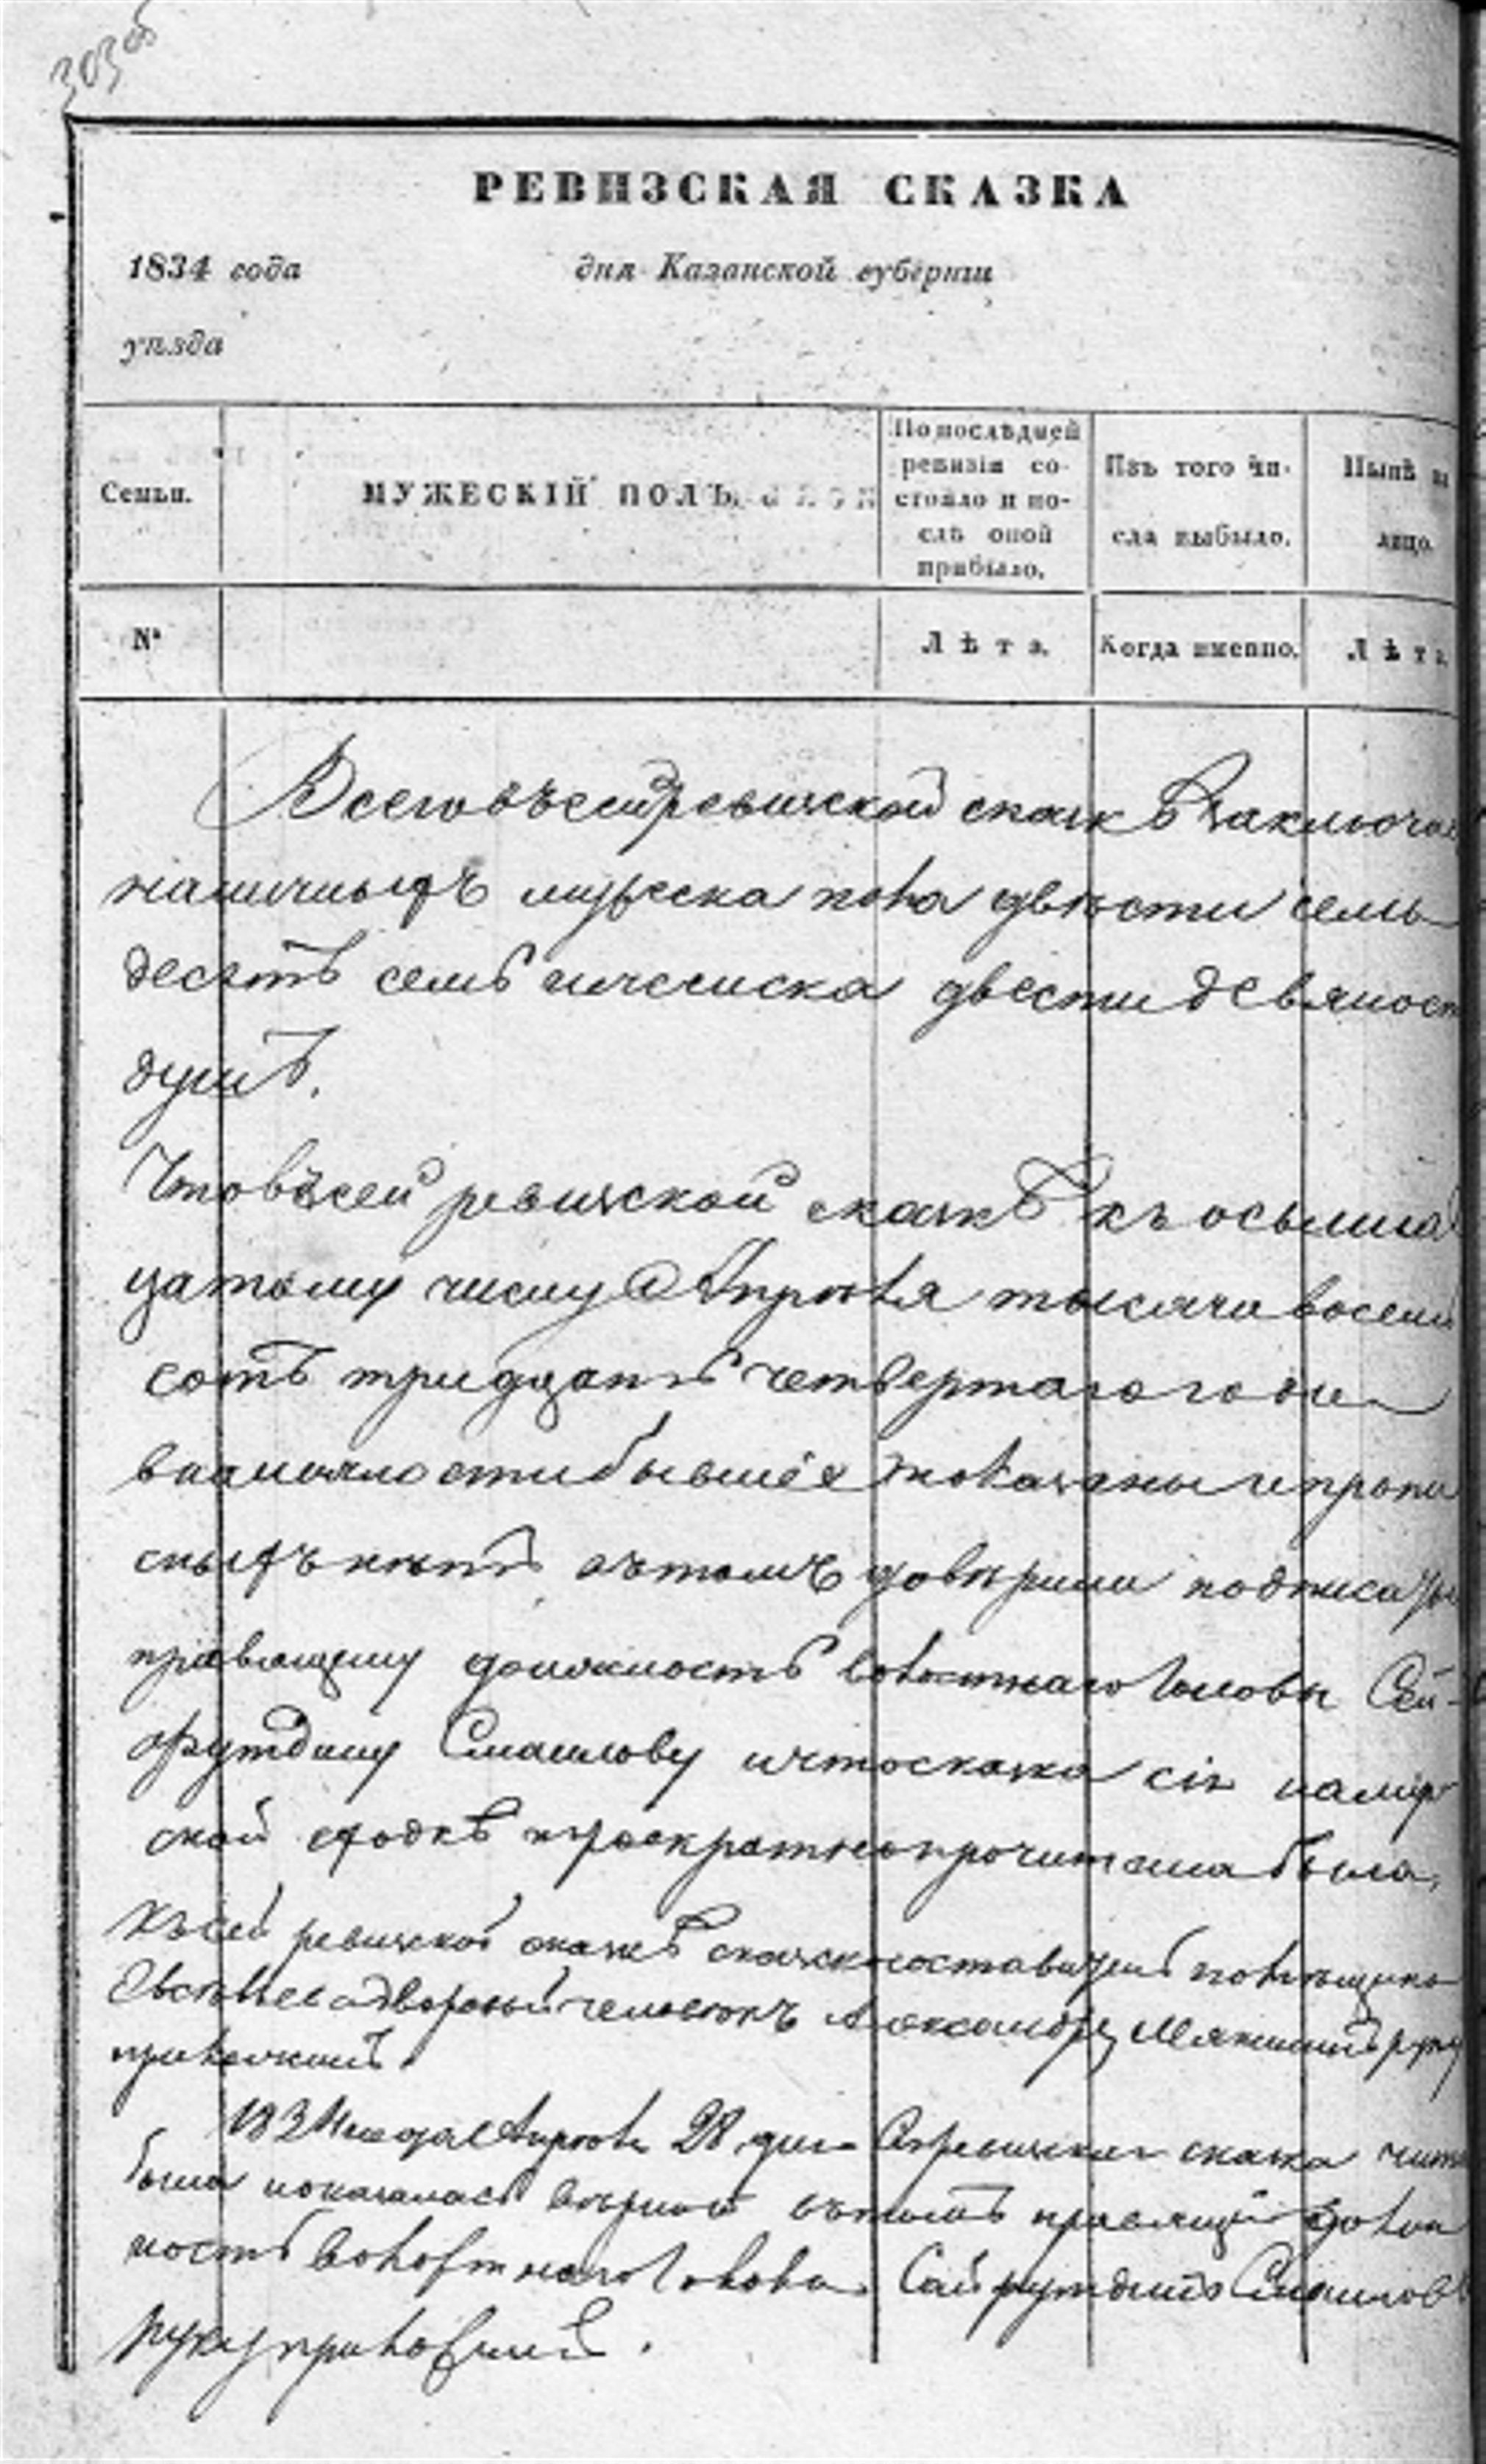 303 об
РЕВИЗСКАЯ СКАЗКА
1834 года дня Казанской губерніи
уѣзда
Семьи. МУЖЕСКІЙ ПОЛЪ. По послѣдней ревизіи состояло и послѣ оной прибыло. Изъ того числа выбыло. Нынѣ на лицо.
№ Лѣта. Когда именно. Лѣта.
Всего въ сей ревизской сказкѣ заключае
наличныхъ мужеска пола двѣсти семь
десятъ семь и женска двести девяност
душъ.
Что въ сей ревизской сказкѣ къ осьмнад
цатому числу Апреля тысяча восемь
сотъ тридцать четвертаго года
бывшее показаны и пропи
сныхъ нѣтъ въ томъ доверили подписать
правящему должность волостнаго Головы Сей-
футдину Смаилову и что сказка сія на мир
ской сходкѣ троекратно прочитана была,
Къ сей ревизской сказкѣ
дворовый человекъ Александръ руку
приложилъ
1834 года Апреля 28 дня Сія ревизская сказка чит
была и оказалась верной въ томъ правящій долж
ность волостнаго Голова Сайфутдинъ Смаиловъ
руку приложилъ.